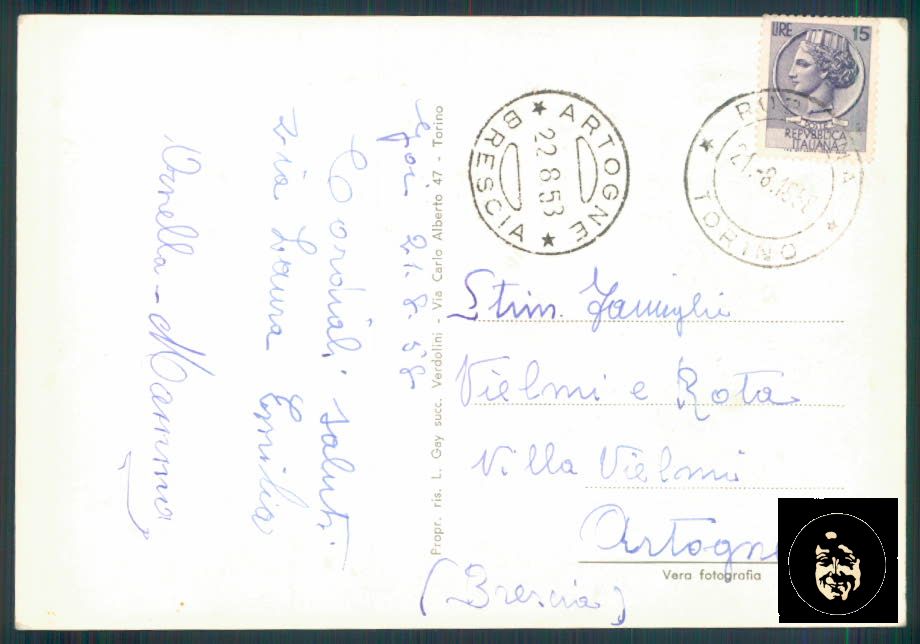 LIRE 15
POSTE
REPVBBLICA
ITALIANA
ARTOGNE
22.8.53
BRESCIA
TORINO
21.-8.
21.8.58
Cordiali saluti
zia Laura Emilia
Ornella - Mamma
Propr. ris. L. Gay succ. Verdolini - Via Carlo Alberto 47 - Torino
Stim. Famiglie
Vielmi e Rota
Villa Vielmi
Artogne
(Brescia)
Vera fotografia